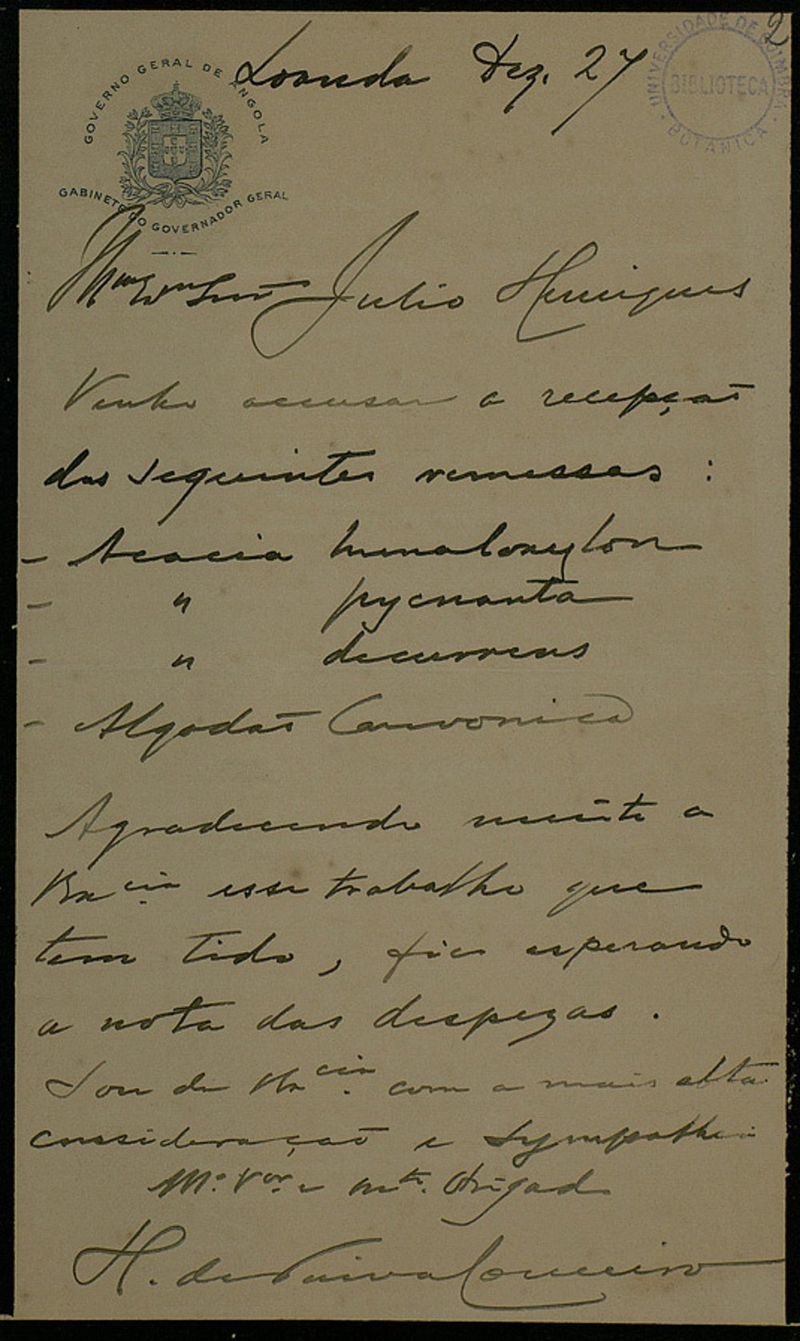 2
UNIVERSIDADE DE COIMBRA
BIBLIOTECA
BOTANICA
GOVERNO GERAL DE ANGOLA
GABINETE DO GOVERNADOR GERAL
Loanda Dez. 27
Julio Henriques
Venho accusar a recepção
das seguintes remessas :
- Acacia menaloxylon
- " pycnanta
- " decurrens
- Algodão Caravonica
Agradecendo muito a
V. Ex.cia esse trabalho que
tem tido, fico esperando
a nota das despezas .
Sou de V. Ex.cia com a mais alta
consideração e sympathia
M.to V.or e m.to Obrigado
H. de Paiva Couceiro